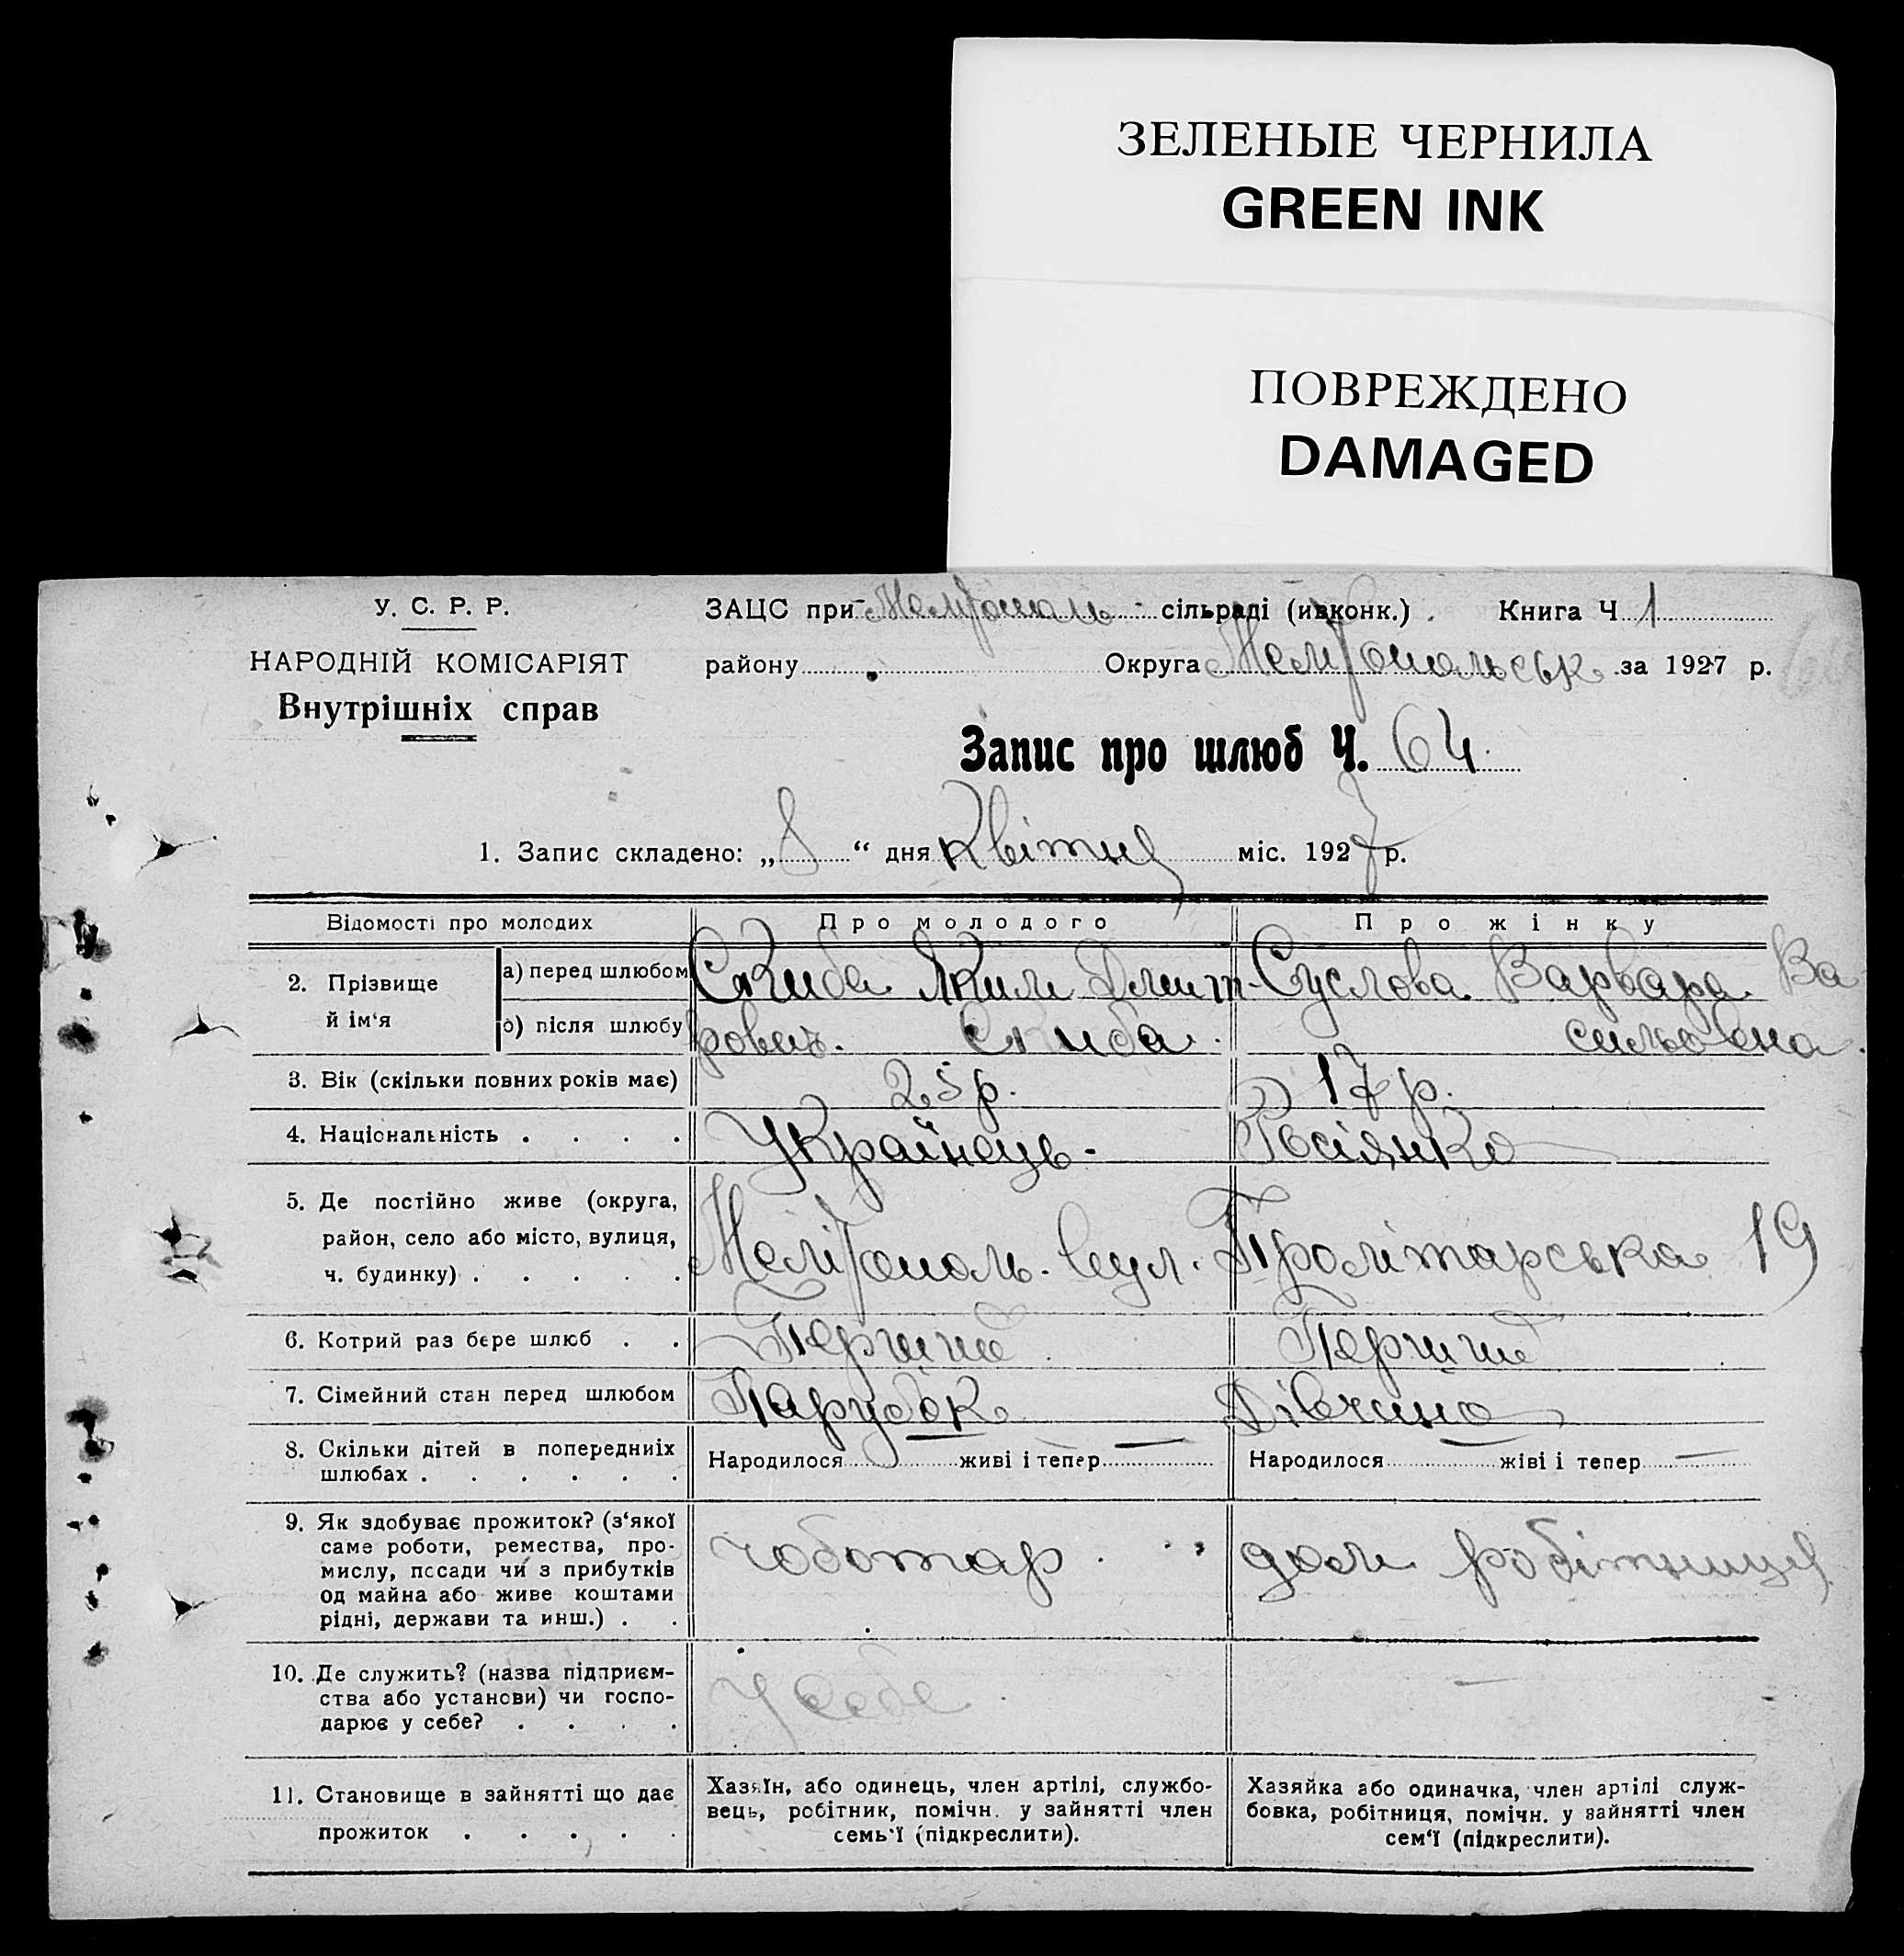 ЗЕЛЕНЫЕ ЧЕРНИЛА
GREEN INK
ПОВРЕЖДЕНО
DAMAGED
У. С. Р. Р.
НАРОДНІЙ КОМІСАРІЯТ
Внутрішніх справ
ЗАЦС при Мелітополь сільраді (ивконк.) Книга Ч 1
району Округа Мелітопольськ за 1927 р.
Запис про шлюб Ч. 64
1. Запис складено: „8“ дня Квітня міс. 1927 р.
Відомості про молодих Про молодого Про жінку
2. Прізвище й ім‘я
а) перед шлюбом Скиба Яким Дмит- Суслова Варвара Ва
б) після шлюбу ровеч. Скиба. сильовна.
3. Вік (скільки повних років має) 25 р. 17 р.
4. Національність . . . . Українець - Росіянка
5. Де постійно живе (округа,
район, село або місто, вулиця,
ч. будинку) . . . . .
Мелітополь. вул. Пролітарська 19
6. Котрий раз бере шлюб . . Перший Перший
7. Сімейний стан перед шлюбом Парубок Дівчина
8. Скільки дітей в попередниіх
шлюбах . . . . . .
Народилося — живі і тепер —
Народилося — жіві і тепер —
9. Як здобуває прожиток? (з‘якої
саме роботи, ремества, про-
мислу, посади чи з прибутків
од майна або живе коштами
рідні, держави та инш.) . .
чоботар
дом робітниця
10. Де служить? (назва підприєм-
ства або установи) чи госпо-
дарює у себе? . . . .
У себе
—
11. Становище в зайнятті що дає
прожиток . . . . .
Хазяїн, або одинець, член артілі, службо-
вець, робітник, помічн. у зайнятті член
семь‘ї (підкреслити).
Хазяйка або одиначка, член артілі служ-
бовка, робітниця, помічн. у зайнятті член
сем‘ї (підкреслити).